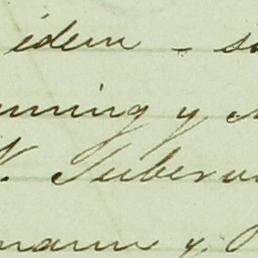 idem - s
nning y
V. Tuberv
mann y.